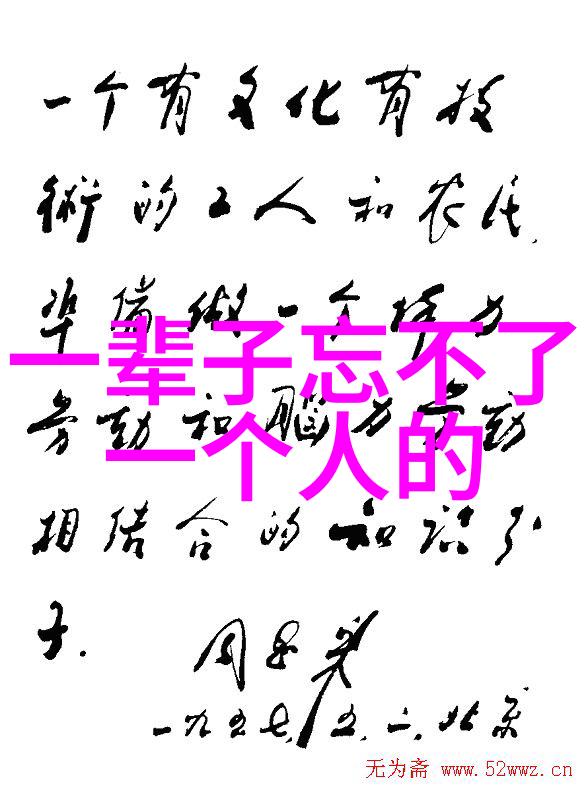 一个有文化有技
術的工人和农民,
準備做一个体力
一辈子忘不了
劳动和脑力劳动
一个人的
相结合的知识分
子.
周恩来
一九五七.五.二.北京
无为斋 www.52wwz.cn